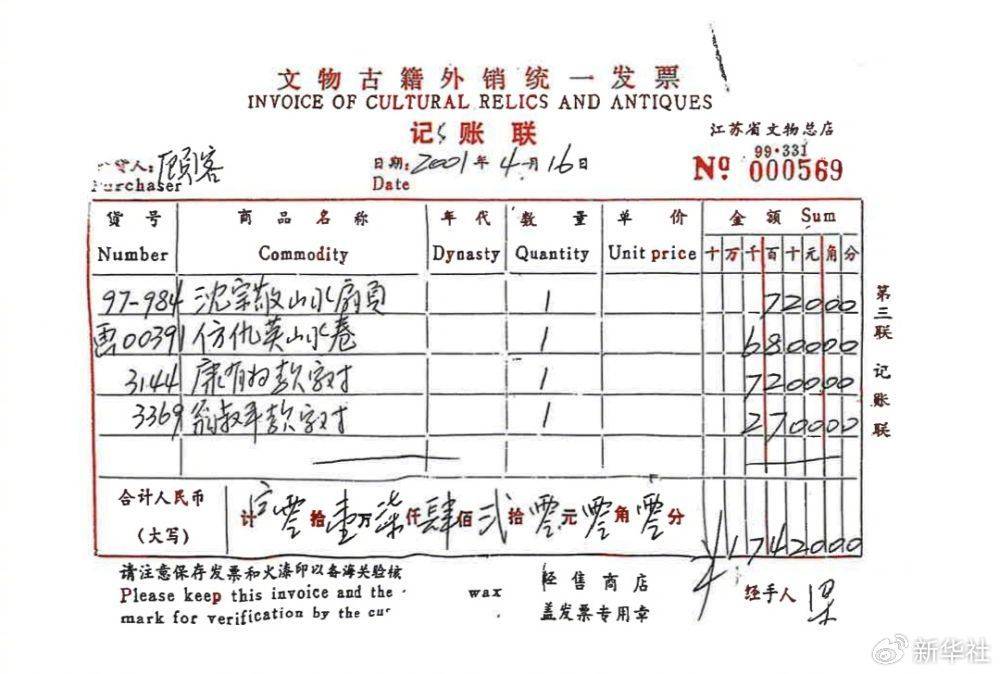 文物古籍外销统一发票
INVOICE OF CULTURAL RELICS AND ANTIQUES
记账联
江苏省文物总店
货人:顾客
Purchaser
日期:2001年4月16日
Date
99·331
Nº 000569
货号 商品名称 年代 数量 单价 金额 Sum
Number Commodity Dynasty Quantity Unit price 十万千百十元角分
97-984 沈宗敬山水扇页 1 72000
画00391 仿仇英山水卷 1 680000
3144 康有为款字对 1 720000
3369 翁叔平款字对 1 270000
合计人民币
(大写)
计 零拾壹万柒仟肆佰贰拾零元零角零分
¥1742000
第三联 记账联
请注意保存发票和火漆印以备海关验核
Please keep this invoice and the wax
mark for verification by the cus
经售商店
盖发票专用章
经手人
新华社